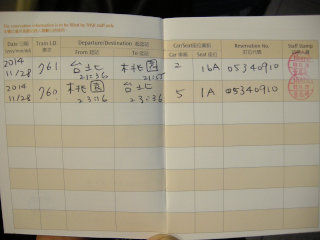 The reservation information is to be filled by THSR staff only.
Date 日期 Train I.D. Departure/Destination 起迄站 Car/Seat 座位資訊 Reservation No. Staff Stamp
車次 From 起站 To 迄站 Car 車廂 Seat 座位 訂位代號
2014 761 台北 桃園 2 16A 05340910
11/28 21:36 21:55
2014 760 桃園 台北 5 1A 05340910
11/28 23:16 23:36